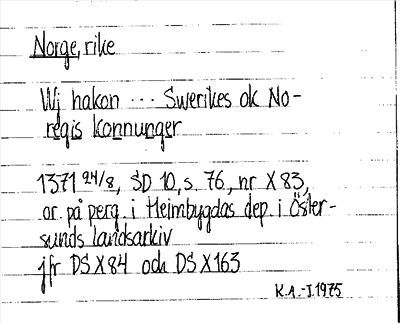 Norge, rike
Wj hakon ... Swerikes ok No-
regis konnunger
1371 24/8, SD 10, s. 76, nr X 83,
or. på perg. i Heimbygdas dep. i Öster-
sunds landsarkiv
jfr DS X 84 och DS X 163
K.A.-I.1975